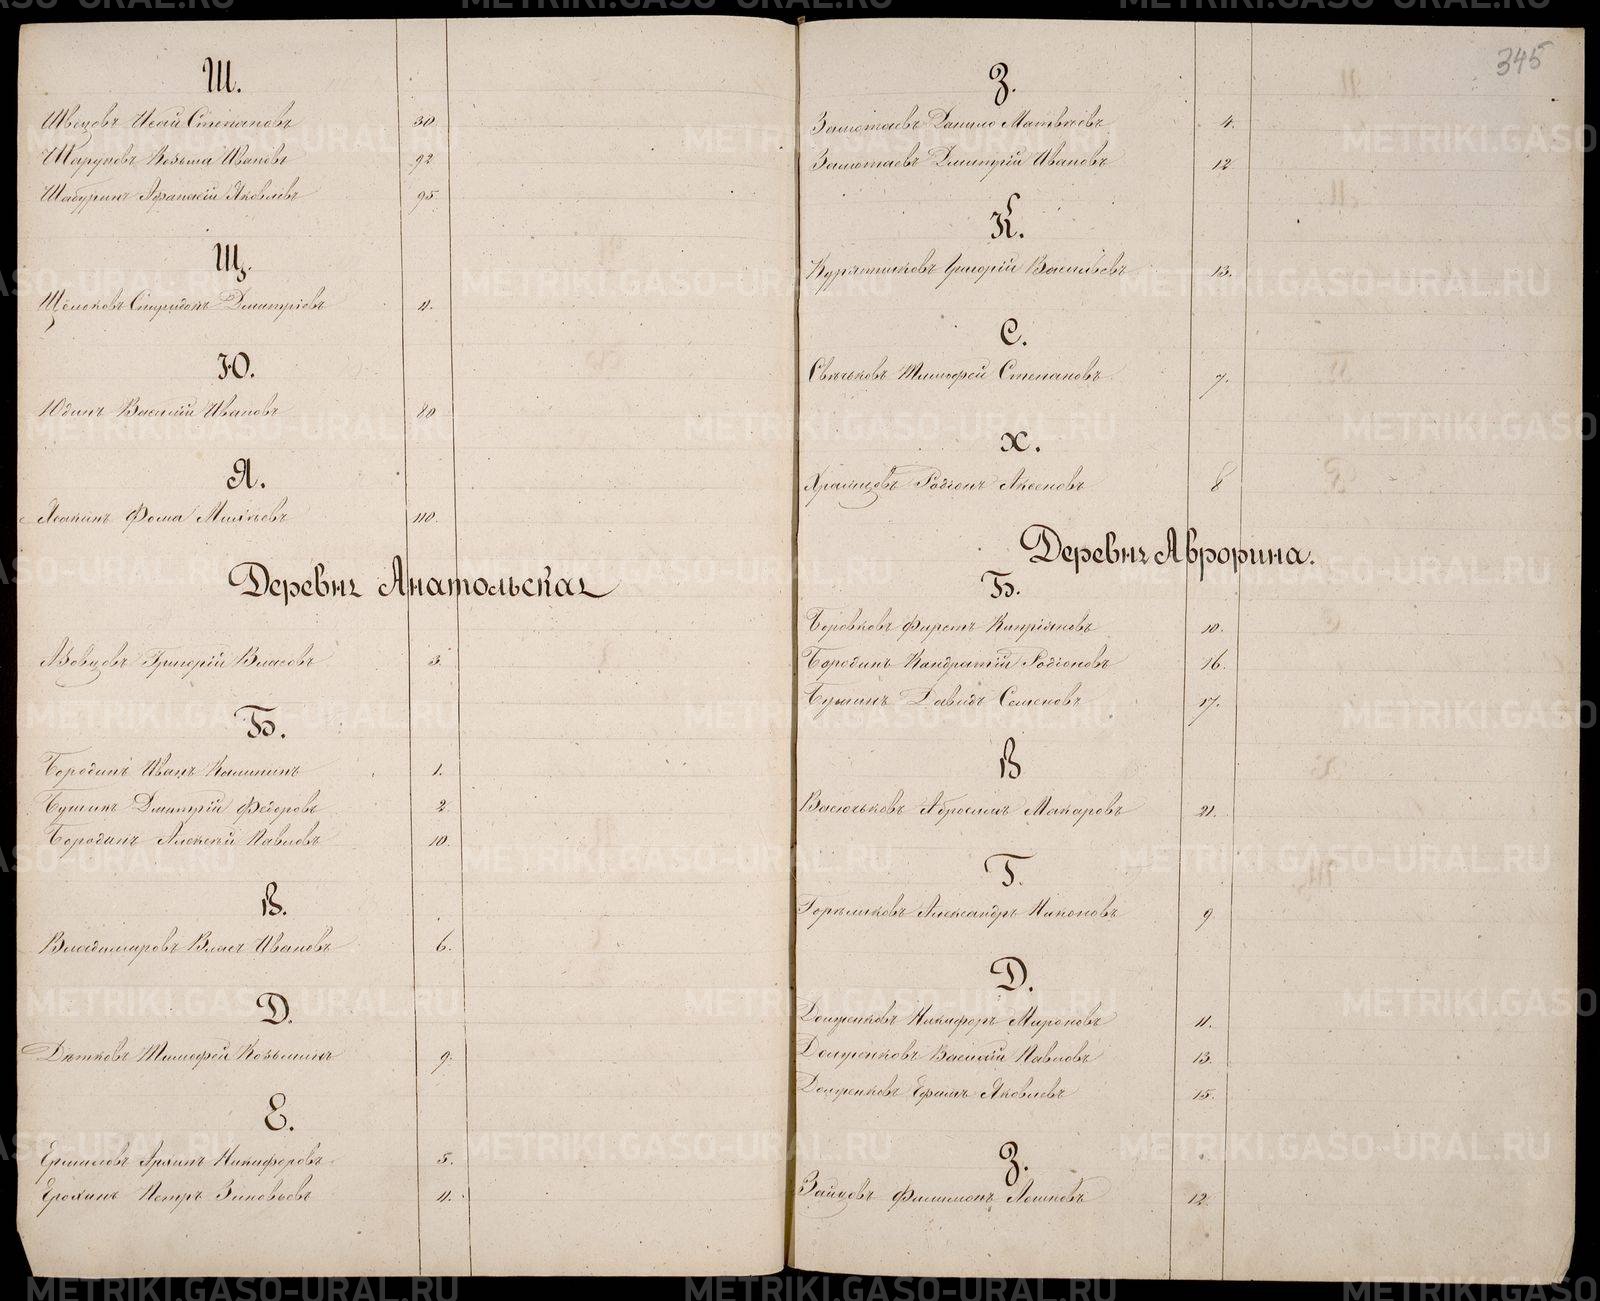 Ш.
Швецовъ Исай Степановъ 30
Шаруновъ Козьма Ивановъ 92
Шабуринъ Афанасій Яковлевъ 95.
Щ.
Щелоковъ Спиридонъ Дмитріевъ 4.
Ю.
Юдинъ Василій Ивановъ 80
Я.
Фома 110.
Деревня Анатольская
Григорій Власовъ 3.
Б.
Бородинъ Иванъ Калининъ 1.
Бушинъ Дмитрій Федоровъ 2.
Бородинъ Алексѣй Павловъ 10.
В.
Владимировъ Власъ Ивановъ 6.
Д.
Дѣтковъ Тимофей Козьминъ 9.
Е.
Ермиловъ Архипъ Никифоровъ 5.
Ерохинъ Петръ Зиновьевъ 4.
345
З.
Замотаевъ Данило Матвѣевъ 4.
Замотаевъ Дмитрій Ивановъ 12
К.
Григорій Васильевъ 13.
С.
Свѣчьковъ Тимофей Степановъ 7.
Х.
Храмцовъ Родіонъ Аксеновъ 8
Деревня Аврорина.
Б.
Боровковъ Фирстъ Капріяновъ 10.
Бородинъ Кандратій Родіоновъ 16.
Бушинъ Давидъ Семеновъ 17.
В
Васючьковъ Абросимъ Макаровъ 21.
Г.
Александръ Никоновъ 9
Д.
Долженковъ Никифоръ Мироновъ 11.
Долженковъ Василій Павловъ 13.
Долженковъ Ефимъ Яковлевъ 15.
З.
Зайцовъ Филимонъ 12
METRIKI.GASO-URAL.RU